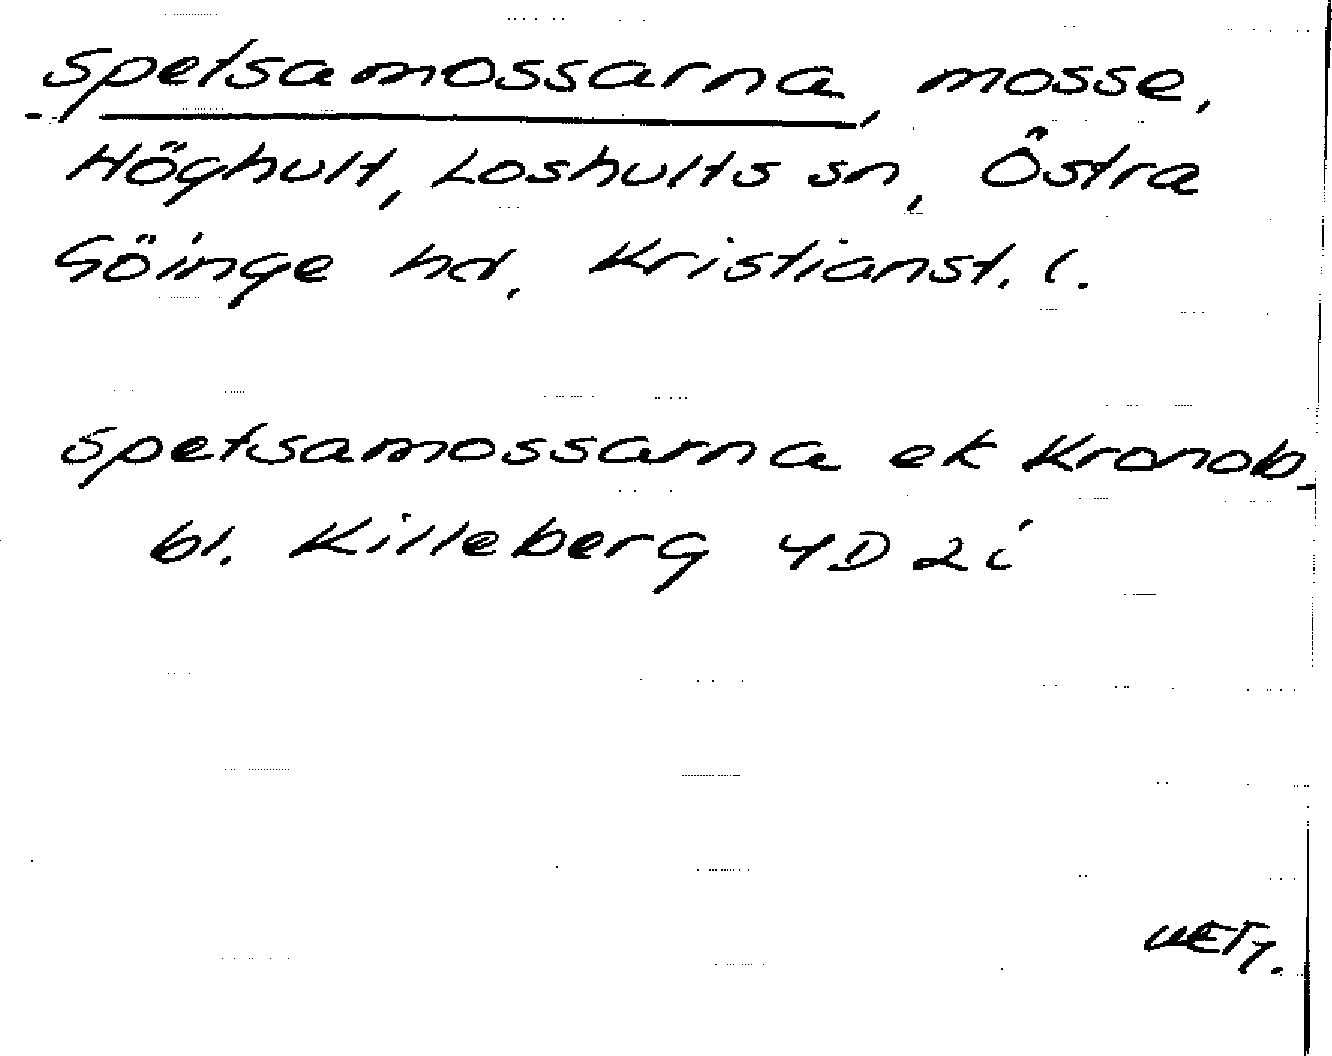 Spetsamossarna, mosse,
Höghult, Loshults sn, Östra
Göinge hd, Kristianst. l.
Spetsamossarna ek Kronob.
bl. Killeberg 4D 2i